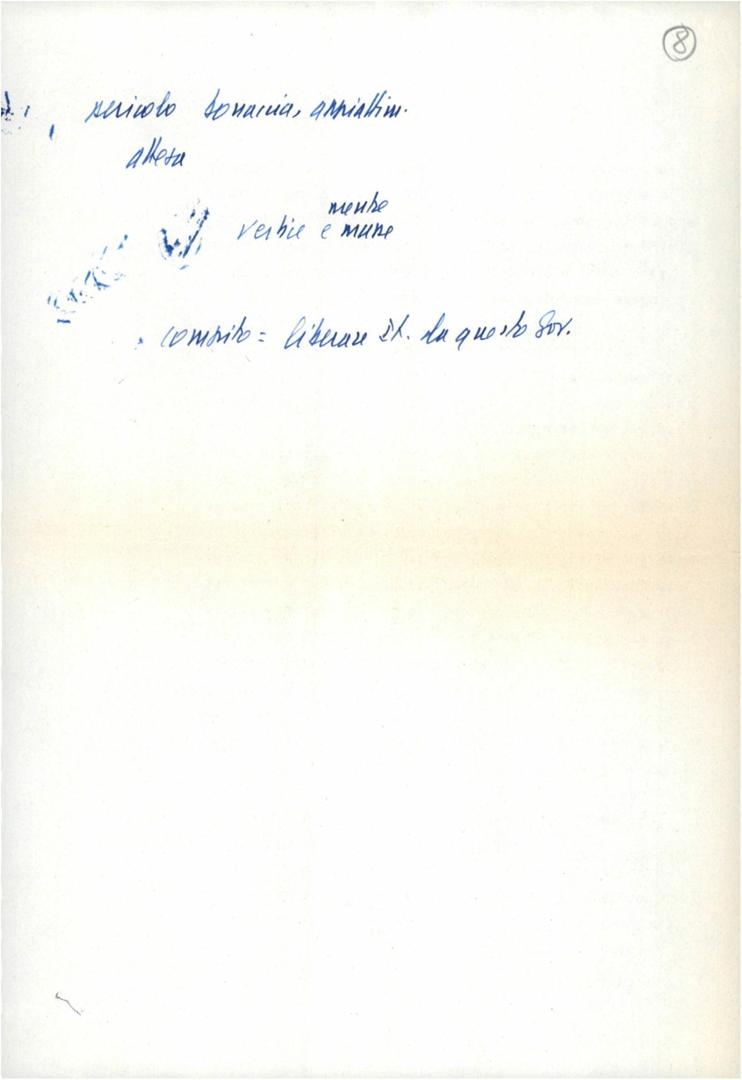 8
pericolo bonaccia, appiattim.
attesa
mente
vecchie e mune
compito = liberare It. da questo Gov.